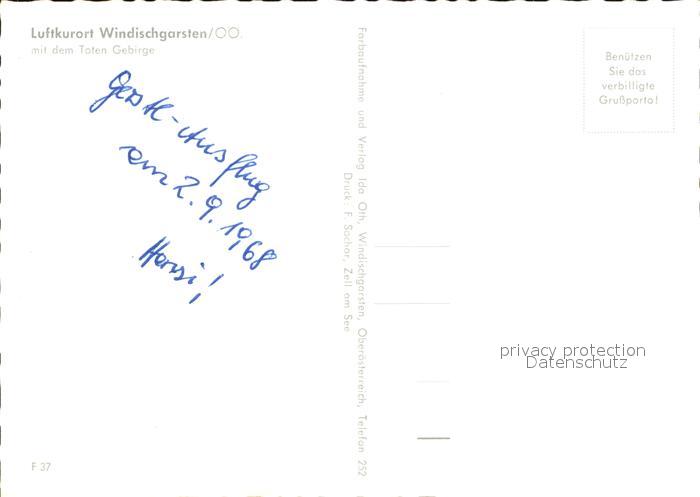 Luftkurort Windischgarsten/OO.
mit dem Toten Gebirge
Gerstl-Ausflug
am 2. 9. 1968
Hansi!
Farbaufnahme und Verlag Ida Oth, Windischgarsten, Oberösterreich, Telefon 252
Druck: F. Sochor, Zell am See
Benützen
Sie das
verbilligte
Grußporto!
privacy protection
Datenschutz
F 37